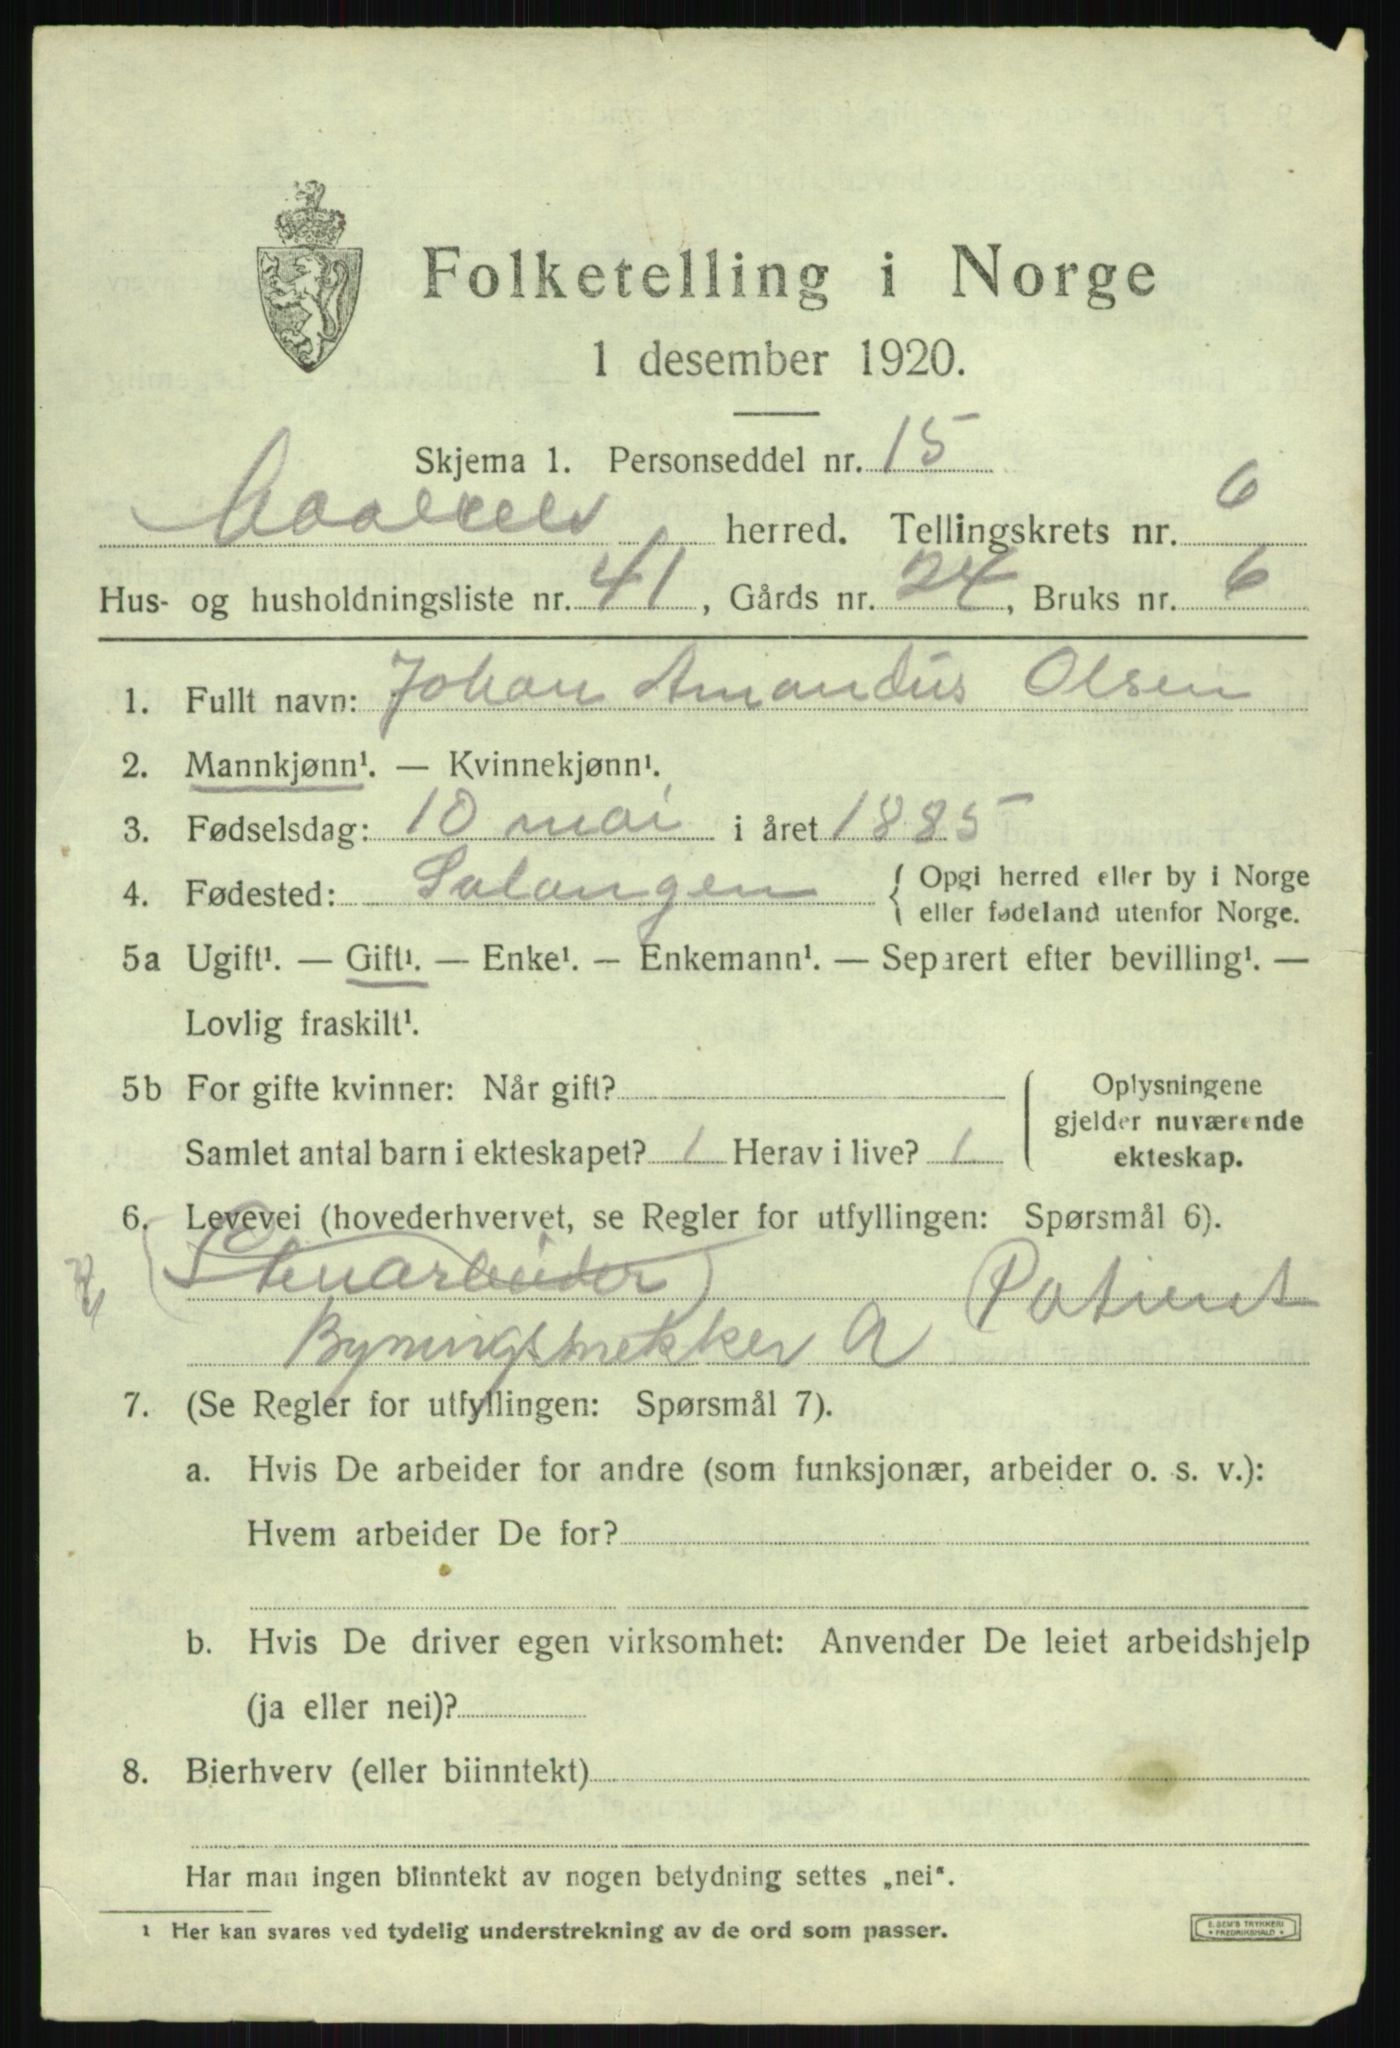 Folketelling i Norge
1 desember 1920.
Skjema 1. Personseddel nr. 15
herred. Tellingskrets nr. 6
Hus- og husholdningsliste nr. 41, Gårds nr. 24, Bruks nr. 6
1. Fullt navn: Johan Amandus Olsen
2. Mannkjønn¹. — Kvinnekjønn¹.
3. Fødselsdag: 10 mai i året 1885
4. Fødested: Salangen { Opgi herred eller by i Norge
eller fødeland utenfor Norge.
5a Ugift¹. — Gift¹. — Enke¹. — Enkemann¹. — Separert efter bevilling¹. —
Lovlig fraskilt¹.
5b For gifte kvinner: Når gift?
Samlet antal barn i ekteskapet? 1 Herav i live? 1
Oplysningene
gjelder nuværende
ekteskap.
6. Levevei (hovederhvervet, se Regler for utfyllingen: Spørsmål 6).
Patient
A
7. (Se Regler for utfyllingen: Spørsmål 7).
a. Hvis De arbeider for andre (som funksjonær, arbeider o. s. v.):
Hvem arbeider De for?
b. Hvis De driver egen virksomhet: Anvender De leiet arbeidshjelp
(ja eller nei)?
8. Bierhverv (eller biinntekt)
Har man ingen biinntekt av nogen betydning settes „nei“.
¹ Her kan svares ved tydelig understrekning av de ord som passer.
E. SEM'S TRYKKERI
* FREDRIKSHALD *